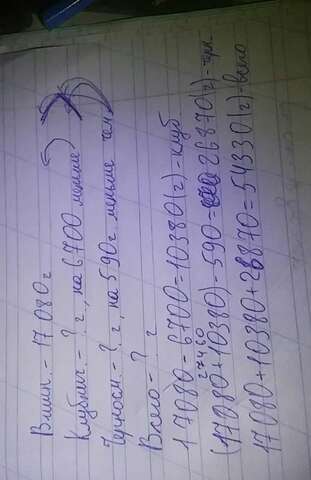 Вишн. - 17 080 г
Клубнич. - ? г, на 6 700 меньше
Черносм. - ? г, на 590 г меньше чем
Всего - ? г
17080 - 6700 = 10380 (г) - клуб
27460
(17080 + 10380) - 590 = 26870 (г) - чрн
17080 + 10380 + 26870 = 54330 (г) - всего